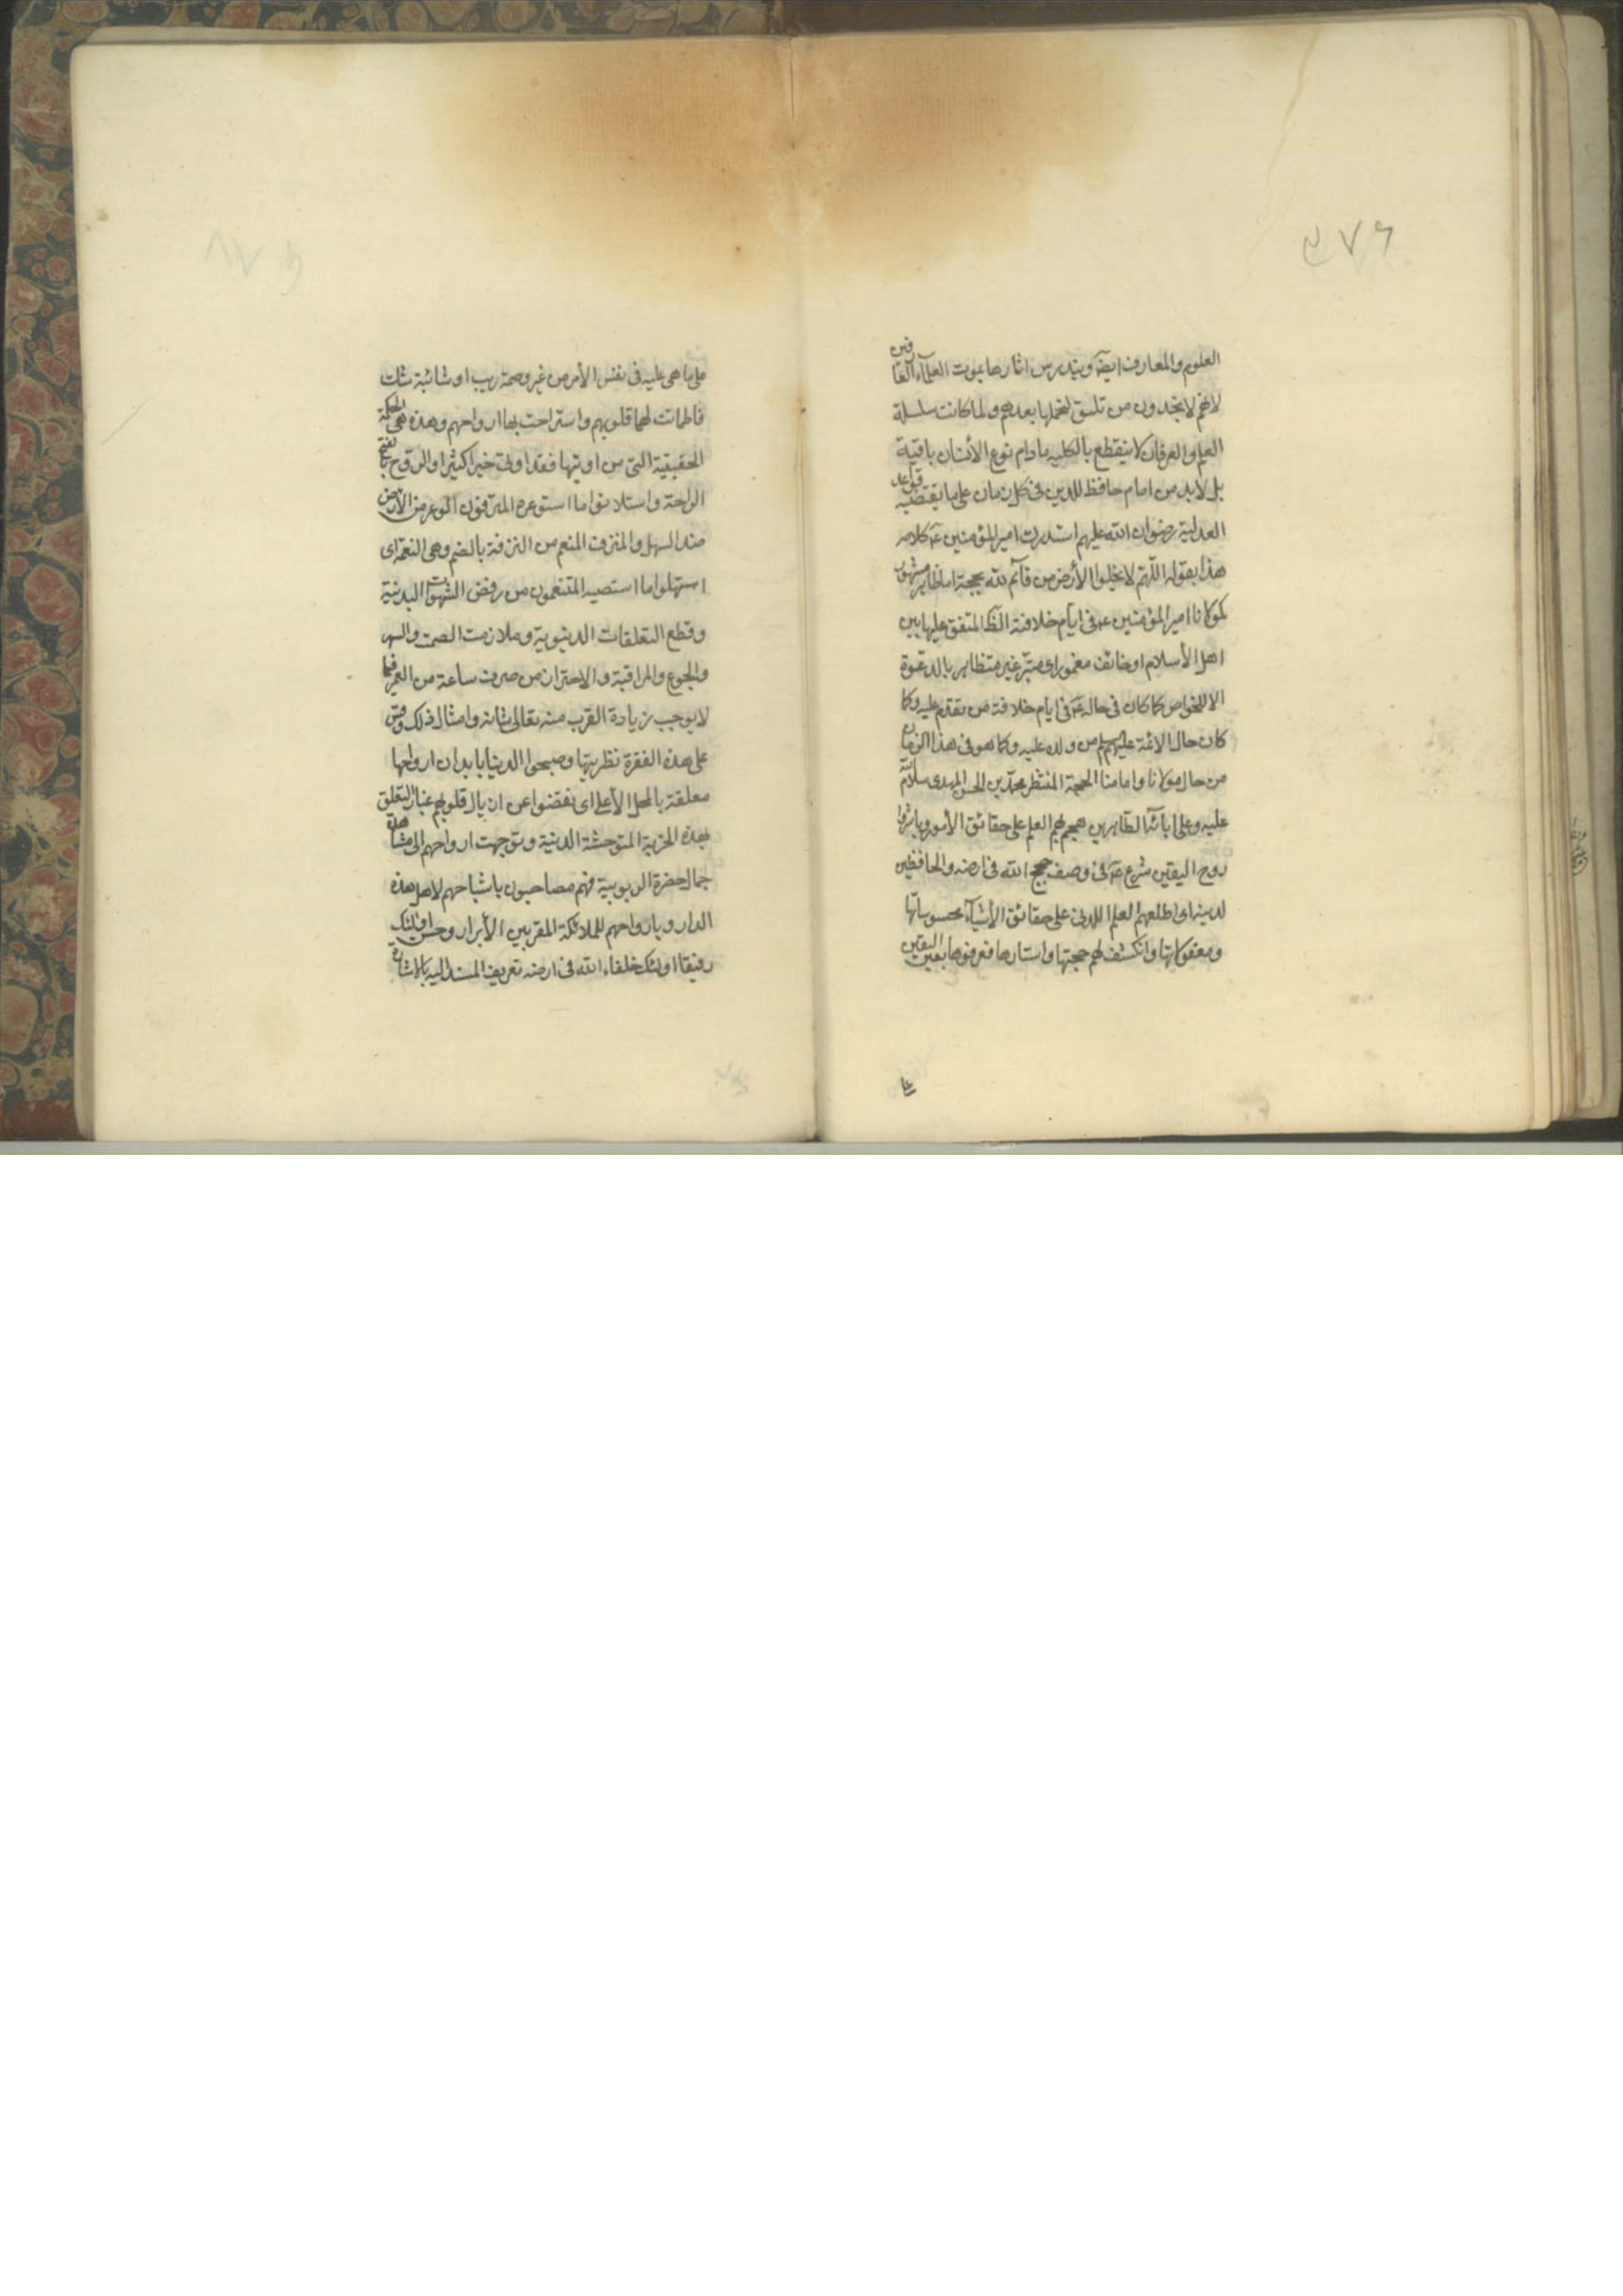 ٤٧٦
العلوم والمعارف ايضا ويندرس اثارها بموت العلماء العارفين
لانهم لا يجدون من تليق لتحملها بعدهم ولما كانت سلسلة
العلم والعرفان لا ينقطع بالكليه مادام نوع الأنسان باقية
بل لابد من امام حافظ للدين فى كل زمان على ما يقتضيه قواعد
العدلية رضوان الله عليهم استدرك امير المؤمنين ع كلامه
هذا بقوله اللهم لا يخلوا الأرض من قائم لله بحجة اما ظاهر مشهور
كمولانا امير المؤمنين ع فى ايام خلافته الظ المتفق عليها بين
اهل الأسلام او خائف مغمور اى مستتر غير متظاهر بالدعوة
الا للخواص كما كان فى حاله ع فى ايام خلافة من تقدم عليه وكما
كان حال الائمة عليهم من ولده عليه وكما هو فى هذا الزمان
من حال مولانا وامامنا الحجة المنتظر محمد بن الحسن المهدى سلام الله
عليه وعلى ابائه الطاهرين هجم بهم العلم على حقائق الأمور وباشروا
روح اليقين شرع ع فى وصف حجج الله فى ارضه والحافظين
لدينه اى اطلعهم العلم اللدنى على حقائق الأشياء محسوساتها
ومعقولاتها وانكشف لهم حجبها واستارها فعرفوها بعين اليقين
على ما هى عليه فى نفس الأمر من غير وصمة ريب او شائبة شك
فاطمانت لها قلوبهم واستراحت بها ارواحهم وهذه هى الحكمة
الحقيقية التى من اوتيها فقد اوتى خيرا كثيرا والروح بالفتح
الراحة واستلانوا ما استوعره المترفون الوعر من الأرض
ضد السهل والمترف المنعم من الترفة بالضم وهى النعمة اى
استسهلوا ما استصعبه المتنعمون من رفض الشهوات البدنية
وقطع التعلقات الدنيوية وملازمت الصمت والسهر
والجوع والمراقبة والاحتراز من صرف ساعة من العمر فيما
لا يوجب زيادة القرب منه تعالى شانه وامثال ذلك وقس
على هذه الفقرة نظيرتها وصحبوا الدنيا بابدان ارواحها
معلقة بالمحل الأعلى اى نفضوا عن اذيال قلوبهم غبار التعلق
بهذه الخربة المتوحشة الدنية وتوجهت ارواحهم الى مشاهدة
جمال حضرة الربوبية فهم مصاحبون باشباحهم لاهل هذه
الدار وبارواحهم للملائكة المقربين الأبرار وحسن اولئك
رفيقا اولئك خلفاء الله فى ارضه تعريف المسند اليه بالاشارة